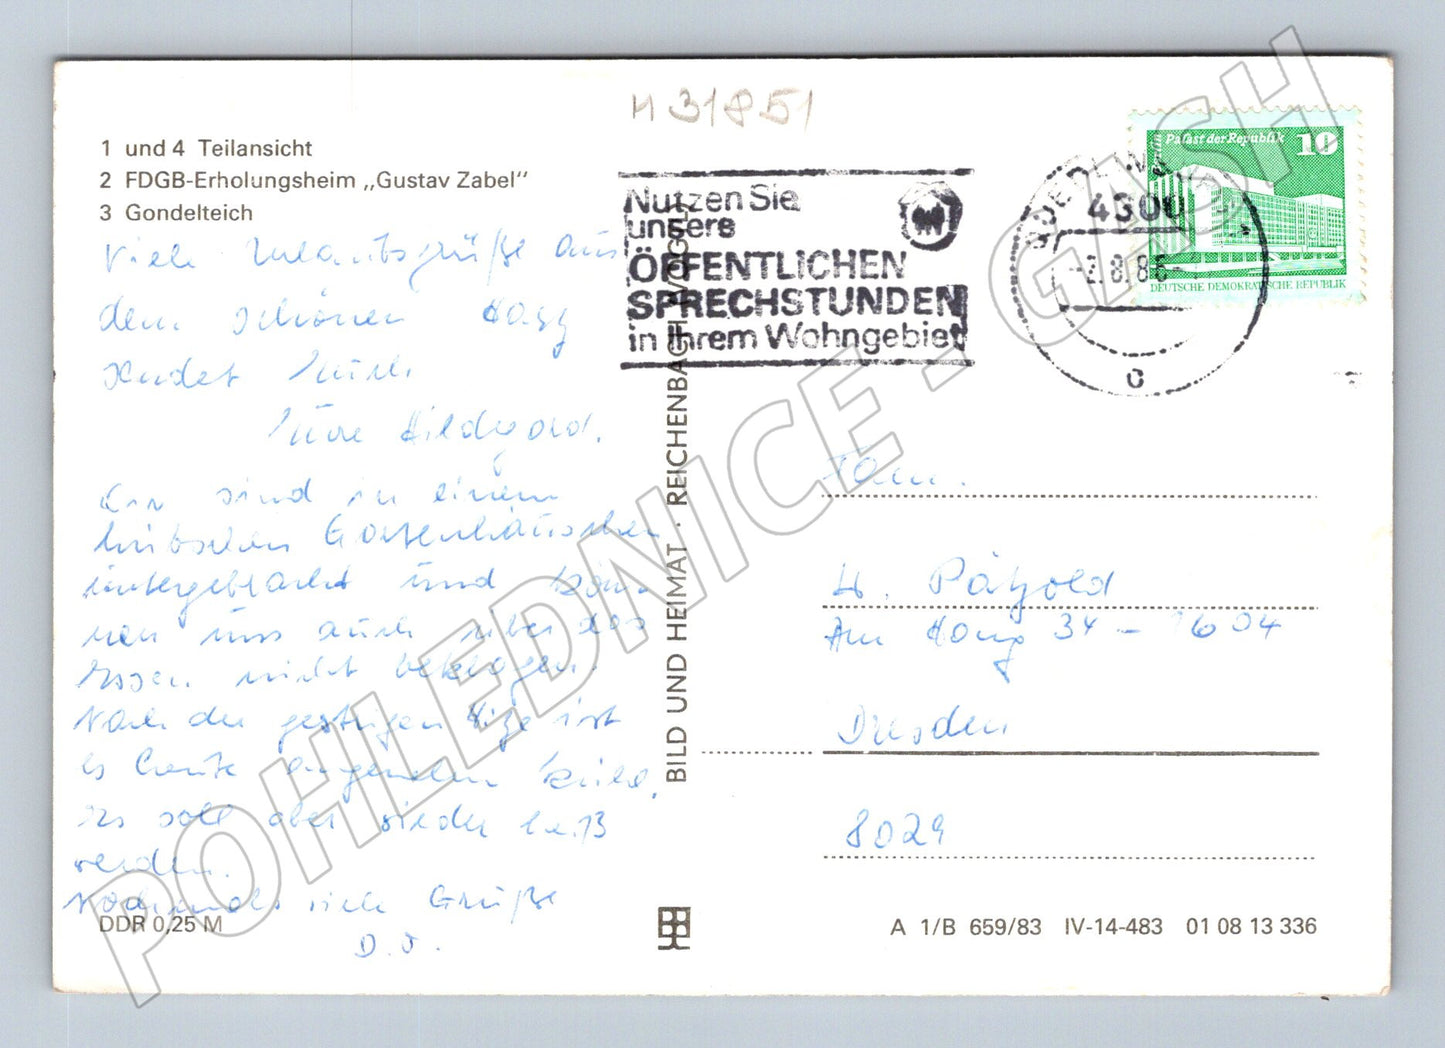 M 31851
1 und 4 Teilansicht
2 FDGB-Erholungsheim „Gustav Zabel"
3 Gondelteich
Viele Urlaubsgrüße aus
dem schönen Harz
sendet Euch
Eure Hildegard.
Wir sind in einem
hübschen Gartenhäuschen
untergebracht und kön-
nen uns auch über das
Essen nicht beklagen.
Nach der gestrigen Hitze ist
es heute angenehm kühl.
Es soll aber wieder heiß
werden.
Nochmals viele Grüße
D. O.
DDR 0,25 M
BILD UND HEIMAT · REICHENBACH I. VOGTL
Nutzen Sie
unsere
ÖFFENTLICHEN
SPRECHSTUNDEN
in Ihrem Wohngebiet
QUEDLINBURG
4300
8.8
c
Palast der Republik 10
DEUTSCHE DEMOKRATISCHE REPUBLIK
Fam.
H. Pätzold
Am Hang 34 - 1604
Dresden
8029
A 1/B 659/83 IV-14-483 01 08 13 336
POHLEDNICE - GASH